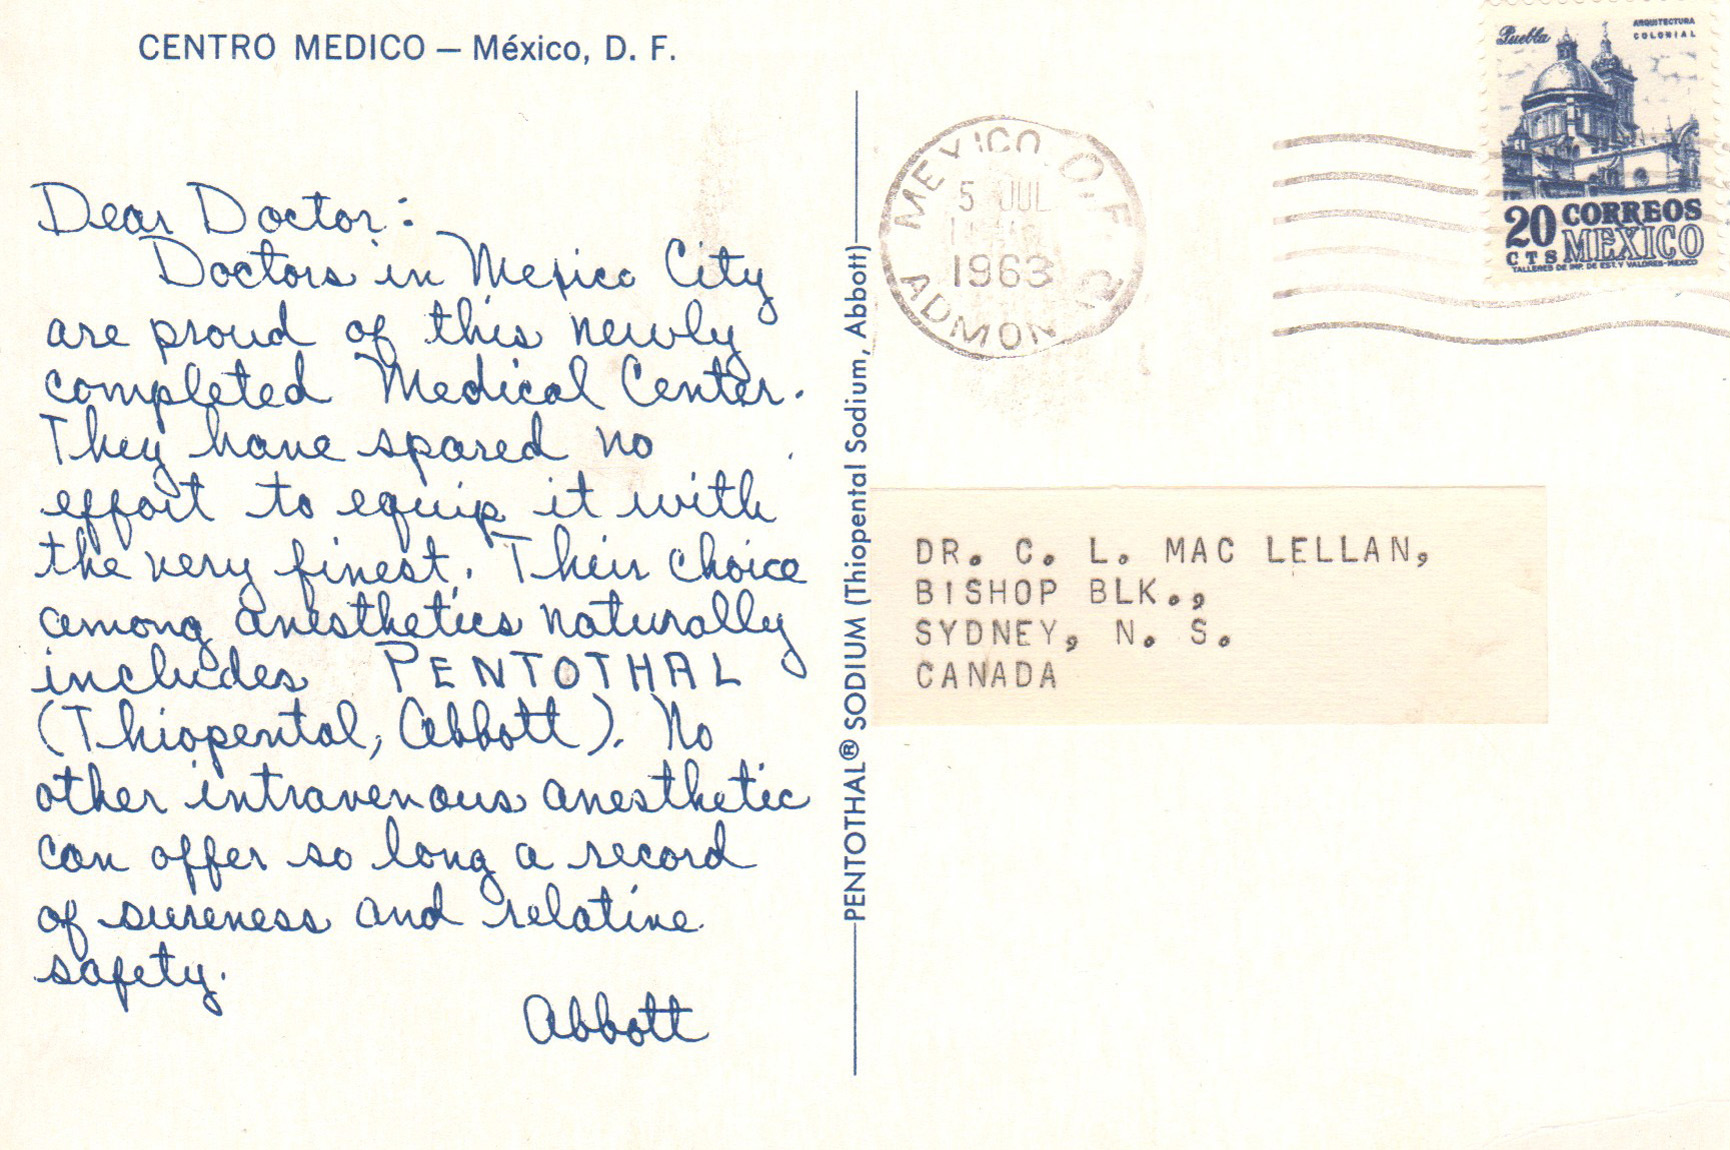 CENTRO MEDICO – México, D. F.
Dear Doctor:
Doctors in Mexico City
are proud of this newly
completed Medical Center.
They have spared no
effort to equip it with
the very finest. Their choice
among anesthetics naturally
includes PENTOTHAL
(Thiopental, Abbott). No
other intravenous anesthetic
can offer so long a record
of sureness and relative
safety.
Abbott
PENTOTHAL® SODIUM (Thiopental Sodium, Abbott)
MEXICO. D.F.
5 JUL
1963
ADMON
Puebla
ARQUITECTURA
COLONIAL
20 CORREOS
CTS MEXICO
TALLERES DE IMP. DE EST. Y VALORES-MEXICO
DR. C. L. MAC LELLAN,
BISHOP BLK.,
SYDNEY, N. S.
CANADA